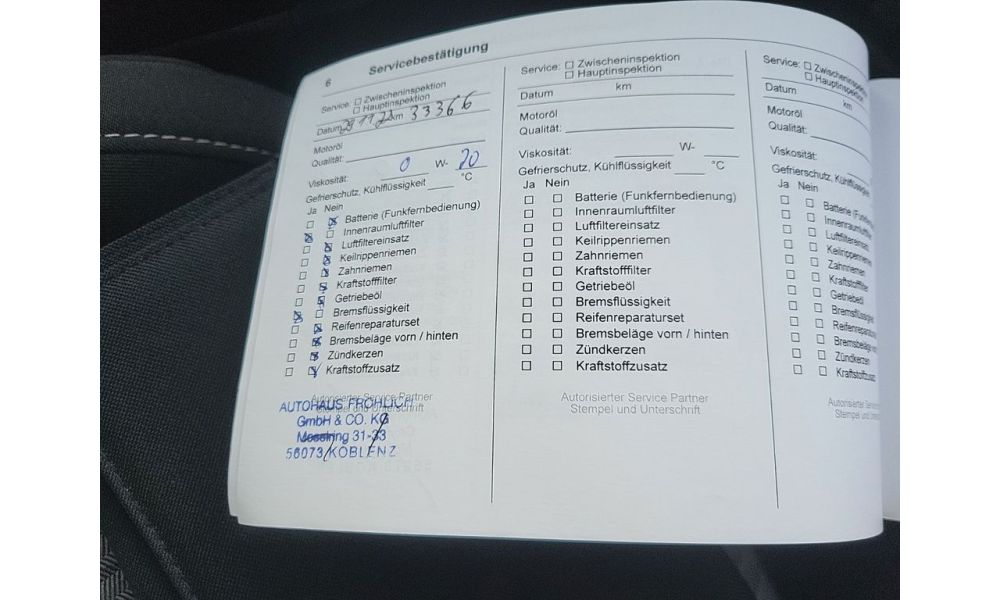 6
Servicebestätigung
Service: ☐ Zwischeninspektion
☐ Hauptinspektion
Datum km 33366
Motoröl
Qualität:
Viskosität: 0 W- 20
Gefrierschutz, Kühlflüssigkeit °C
Ja Nein
Batterie (Funkfernbedienung)
Innenraumluftfilter
Luftfiltereinsatz
Keilrippenriemen
Zahnriemen
Kraftstofffilter
Getriebeöl
Bremsflüssigkeit
Reifenreparaturset
Bremsbeläge vorn / hinten
Zündkerzen
Kraftstoffzusatz
Autorisierter Service Partner
Stempel und Unterschrift
AUTOHAUS FRÖHLICH
GmbH & CO. KG
Moselring 31-33
56073 KOBLENZ
Service: ☐ Zwischeninspektion
☐ Hauptinspektion
Datum km
Motoröl
Qualität:
Viskosität: W-
Gefrierschutz, Kühlflüssigkeit °C
Ja Nein
☐ ☐ Batterie (Funkfernbedienung)
☐ ☐ Innenraumluftfilter
☐ ☐ Luftfiltereinsatz
☐ ☐ Keilrippenriemen
☐ ☐ Zahnriemen
☐ ☐ Kraftstofffilter
☐ ☐ Getriebeöl
☐ ☐ Bremsflüssigkeit
☐ ☐ Reifenreparaturset
☐ ☐ Bremsbeläge vorn / hinten
☐ ☐ Zündkerzen
☐ ☐ Kraftstoffzusatz
Autorisierter Service Partner
Stempel und Unterschrift
Service: ☐ Zwischeninspektion
☐ Hauptinspektion
Datum km
Motoröl
Qualität:
Viskosität:
Gefrierschutz, Kühlflüssigkeit
Ja Nein
☐ ☐ Batterie (Funkfernb
☐ ☐ Innenraumluftfilter
☐ ☐ Luftfiltereinsatz
☐ ☐ Keilrippenriemen
☐ ☐ Zahnriemen
☐ ☐ Kraftstofffilter
☐ ☐ Getriebeöl
☐ ☐ Bremsflüssigkeit
☐ ☐ Reifenreparaturset
☐ ☐ Bremsbeläge vorn
☐ ☐ Zündkerzen
☐ ☐ Kraftstoffzusatz
Autorisierter Service
Stempel und Unterschrift